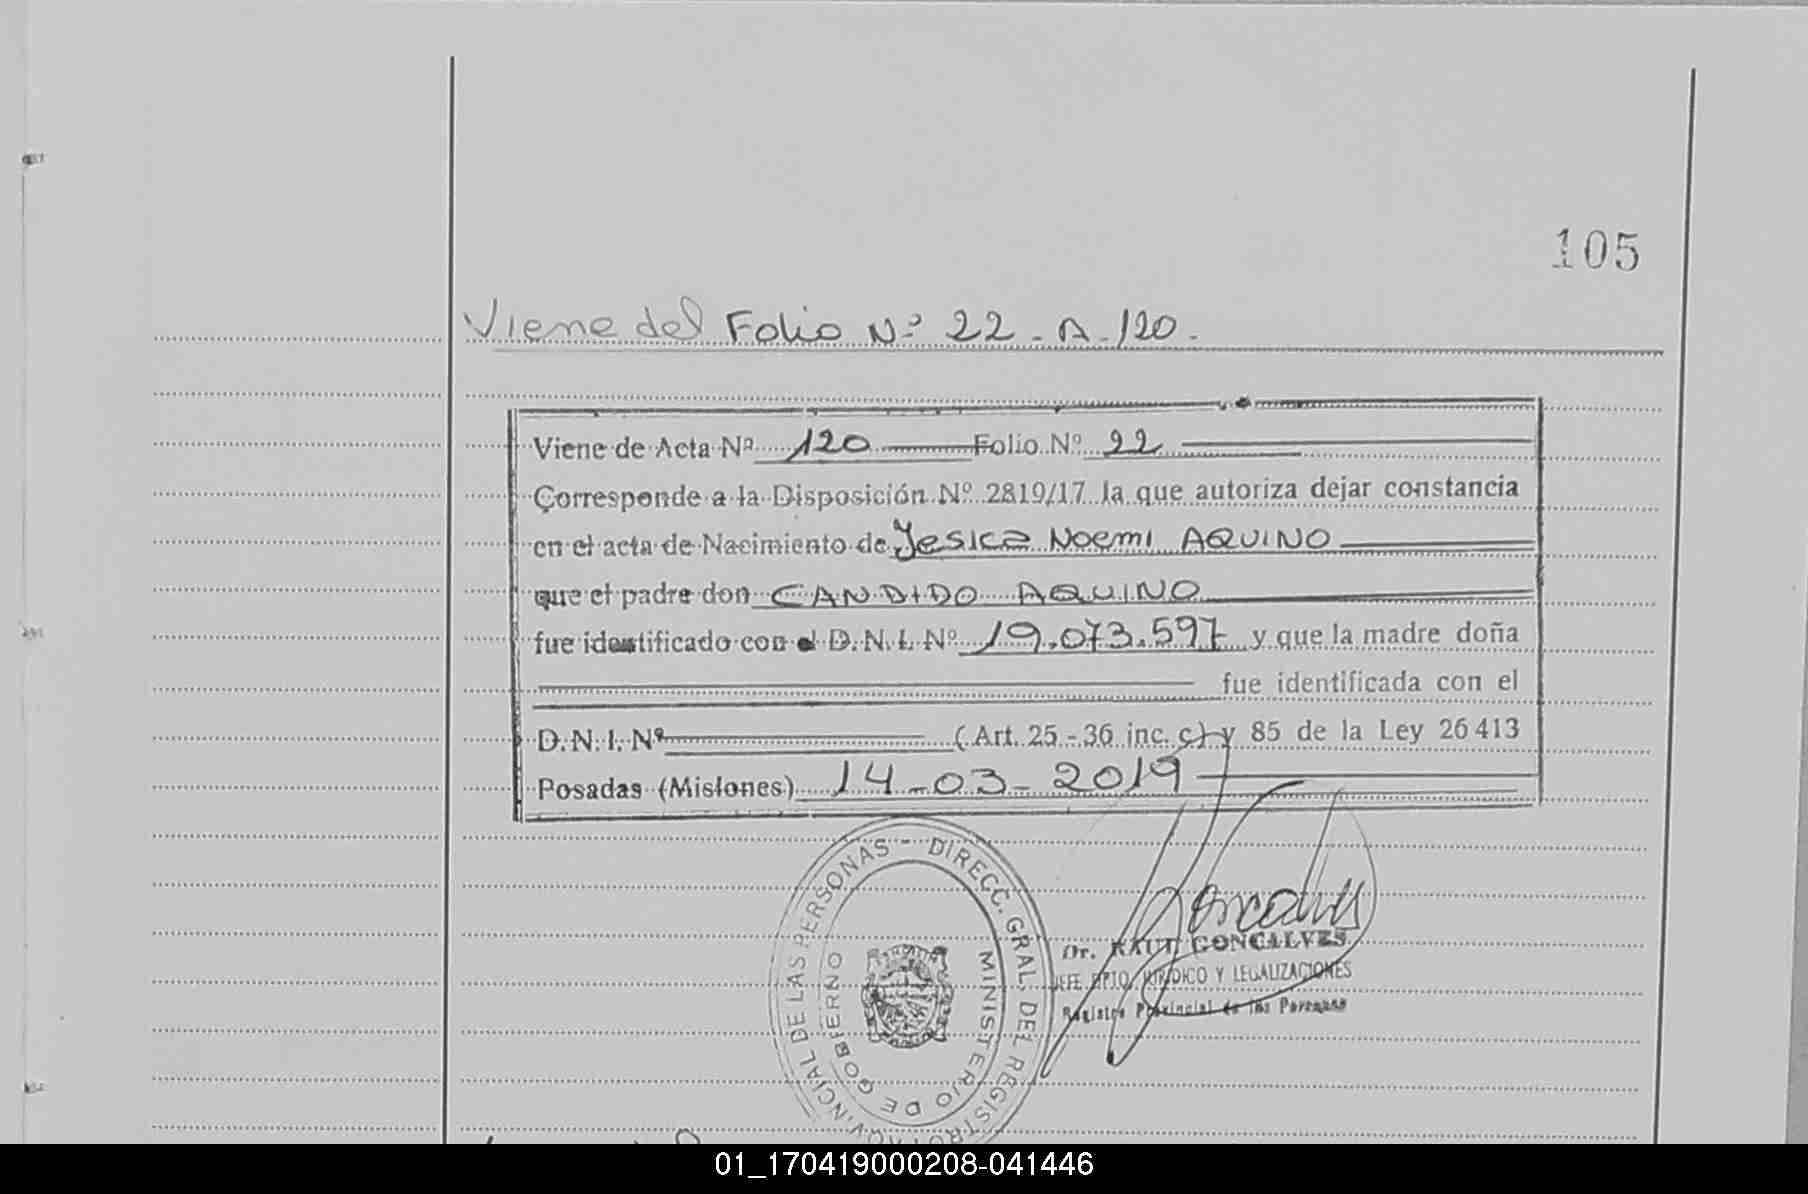 105
Viene del Folio Nº 22 - A - 120 -
Viene de Acta Nº 120 Folio Nº 22
Corresponde a la Disposición Nº 2819/17 la que autoriza dejar constancia
en el acta de Nacimiento de Jesica Noemi AQUINO
que el padre don CANDIDO AQUINO
fue identificado con el D.N.I. Nº 19.073.597 y que la madre doña
fue identificada con el
D.N.I. Nº (Art. 25 - 36 inc. c) y 85 de la Ley 26413
Posadas (Misiones) 14-03-2019
DIRECC. GRAL. DEL REGISTRO PROVINCIAL DE LAS PERSONAS -
MINISTERIO DE GOBIERNO
Goncalves
Dr. RAUL GONCALVES
JEFE DPTO. JURIDICO Y LEGALIZACIONES
Registro Provincial de las Personas
01_170419000208-041446